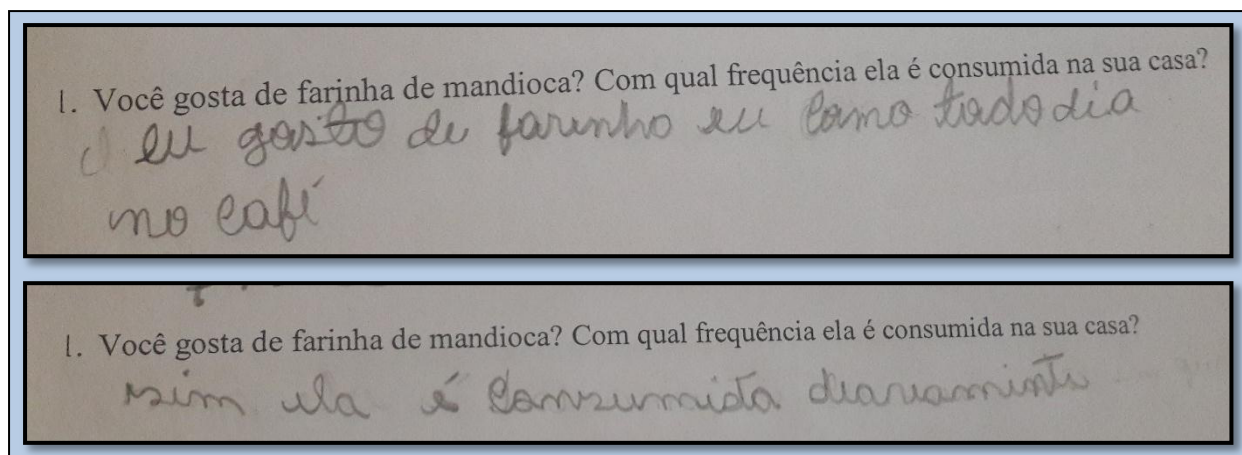 1. Você gosta de farinha de mandioca? Com qual frequência ela é consumida na sua casa?
eu gosto de farinho eu como todo dia
no café
1. Você gosta de farinha de mandioca? Com qual frequência ela é consumida na sua casa?
sim ela é consumida diariamente